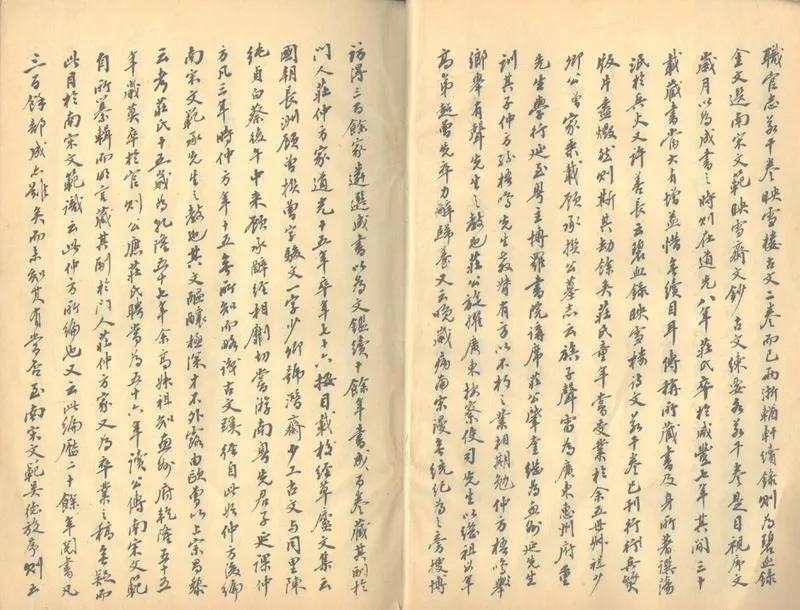 職官志若干卷映雪樓古文二卷而已兩浙輶軒續錄則為碧血錄
金文選南宋文範映雪齋文鈔古文練要各若干卷是目視序文
歲月以為成書之時則在道光八年莊氏卒於咸豐七年其間三十
載藏書當大有增益惜無續目耳傳稱所藏書及身所著譔蕩
泯於兵火又許善長云碧血錄映雪樓詩文若干卷已刊行行兵燹
版片盡燬然則斯其劫餘矣莊氏童年嘗受業於余五世叔祖少
卿公曾家乘載顧承撰公墓志云旗子聲雷為廣東惠州府重
先生學行延至粵主博羅書院講席莊公肇奎繼為惠州延先生
訓其子仲方孫梧鳴先生教督有方以不朽之業相期勉仲方梧鳴舉
鄉舉有聲先生之教也莊公旋擢廣東按察使司先生以繼祖母年
高弟超曾先卒力辭歸養又云晚歲病南宋後無統紀為之旁搜博
訪得三百餘家遴選成書以為文鑑續十餘年書成百卷藏其副於
門人莊仲方家道光十五年卒年七十六按目載校經草廬文集云
國朝長洲顧曾撰曾字駿文一字少卿號潛齋少工古文与同里陳
純貞白蔡後午中来顧承醉經相劘切嘗游南粵先君子延課仲
方凡三年時仲方年十五無所知而略識古文蹊徑自此始仲方後編
南宋文範承先生之教也其文醞釀極深才不外露由歐曾以上宗昌黎
云考莊氏十五歲為乾隆五十七年余高叔祖知惠州府乾隆五十五
年歲莫卒於官則公應莊氏聘當為五十六年讀公傳南宋文範
自所纂輯而明言藏其副於門人莊仲方家又為卒業之稿無疑而
此目於南宋文範識云此仲方所編也又云此編歷二十餘年閱書凡
三百餘部成亦難矣而未知其有當否至南宋文範吳德旋序則云